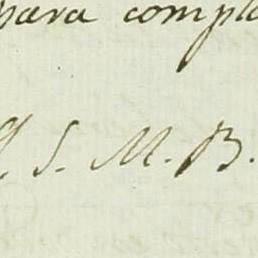 para compla
Q. S. M. B.